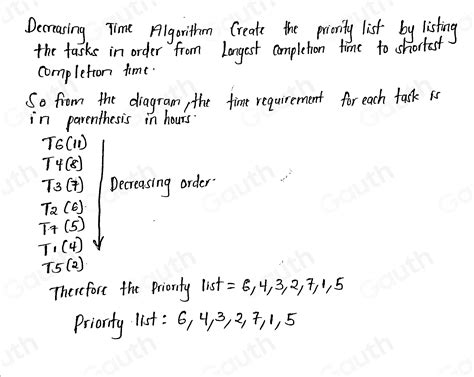 Decreasing Time Algorithm Create the priority list by listing
the tasks in order from Longest Completion time to shortest
Completion time.
So from the diagram, the time requirement for each task is
in parenthesis in hours.
T6(11)
T4(8)
T3(7) Decreasing order.
T2(6)
T7(5)
T1(4)
T5(2)
Therefore the Priority list = 6,4,3,2,7,1,5
Priority list: 6,4,3,2,7,1,5
Gauth